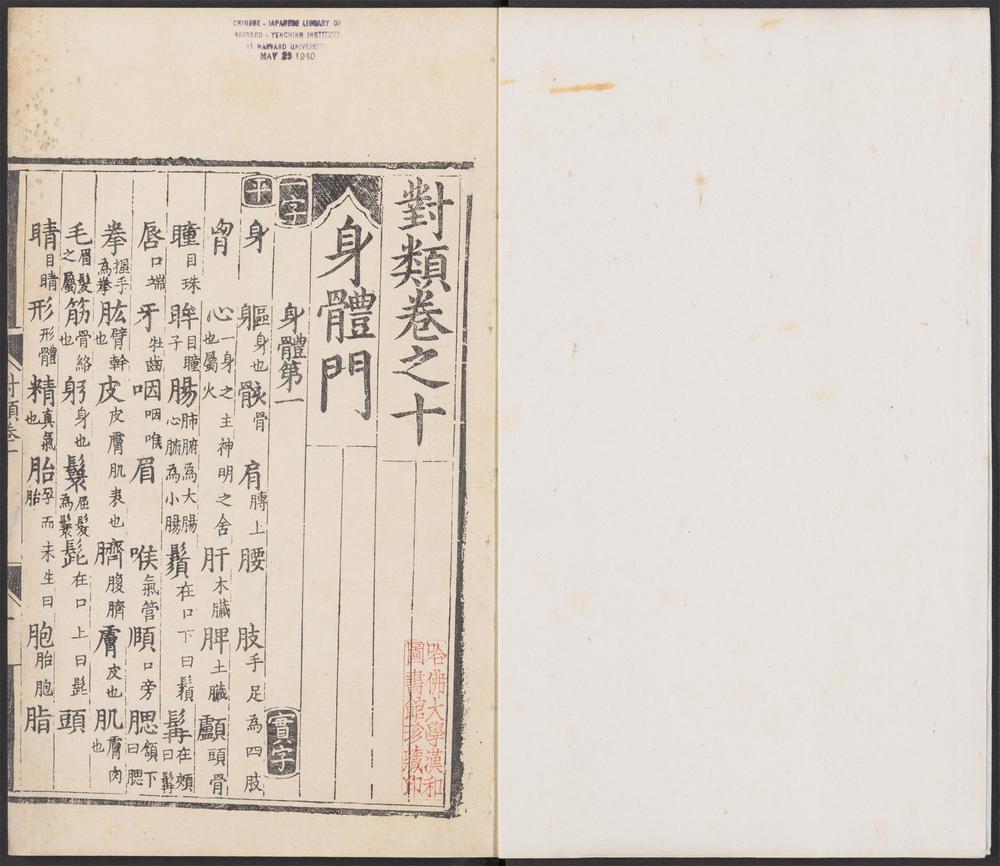 CHINESE - JAPANESE LIBRARY OF
HARVARD - YENCHING INSTITUTE
AT HARVARD UNIVERSITY
MAY 25 1940
對類卷之十
哈佛大學漢和
圖書館珍藏印
身體門
一字
身體第一
實字
平
身 軀 軀身也 骸 骸骨 肩 膊上 腰 肢 手足為四肢
胷 心 一身之主神明之舍也屬火 肝 木臟 脾 土臟 顱 頭骨
瞳 目珠 眸 目瞳子 腸 肺腑為大腸心腑為小腸 鬚 在口下曰鬚 髯 在頰曰髯
唇 口端 牙 牡齒 咽 咽喉 眉 喉 氣管 頤 口旁 腮 頷下曰腮
拳 握手為拳 肱 臂幹也 皮 皮膚肌表也 臍 腹臍 膚 皮也 肌 膚肉也
毛 眉髮之屬 筋 骨絡也 躬 身也 鬟 屈髮為鬟 髭 在口上曰髭 頭
睛 目睛 形 形體 精 真氣也 胎 孕而未生曰胎 胞 胎胞 脂